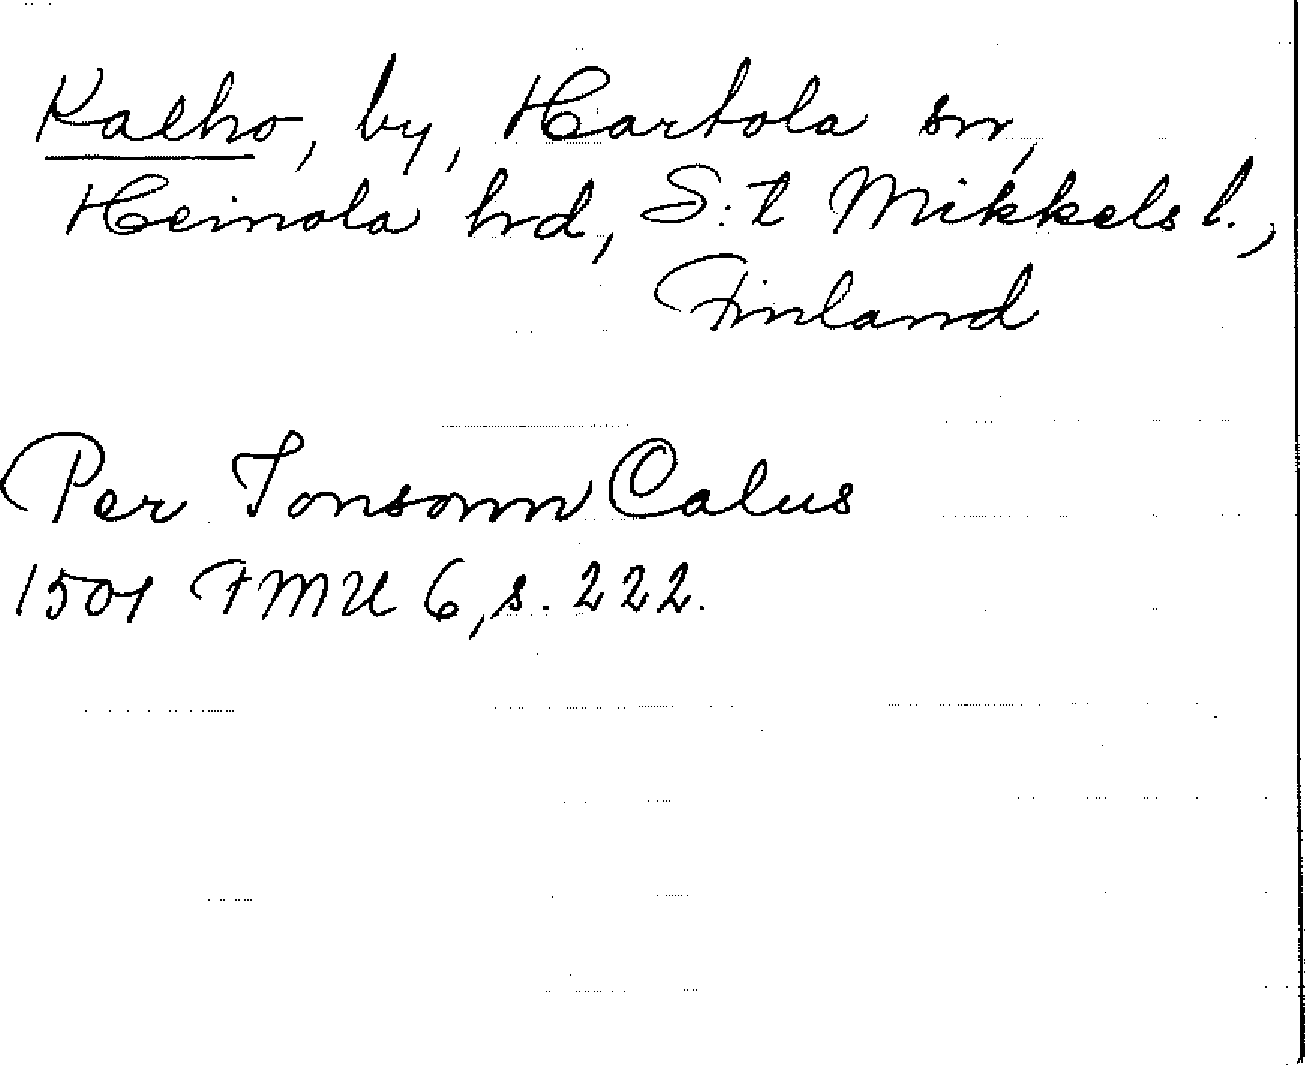 Kalho, by, Hartola sn,
Heinola hrd, S:t Mikkels l.,
Finland
Per Jonsonn Calus
1501 FMU 6, s. 222.